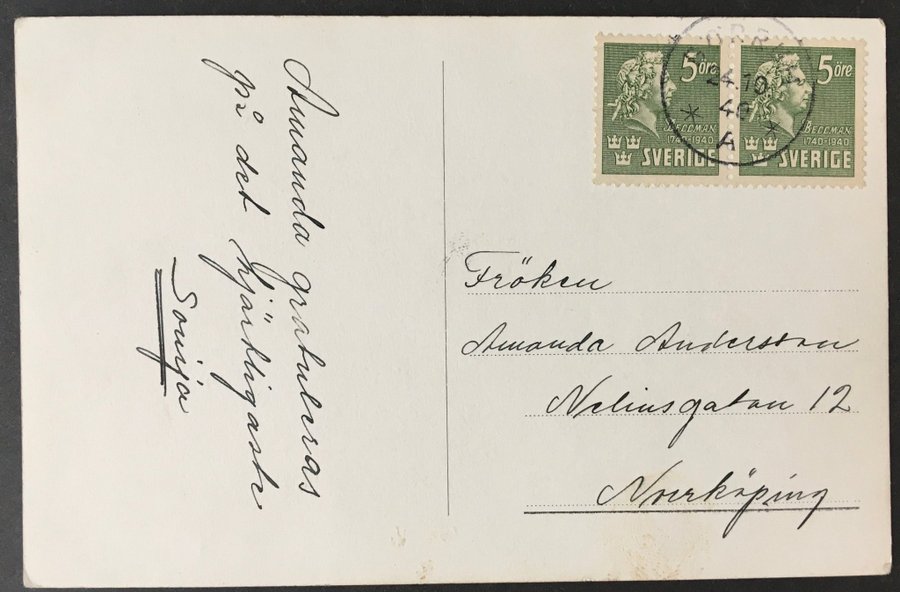 Amanda gratuleras
på det hjärtligaste
Sonija
5 öre
BELLMAN
1740-1940
SVERIGE
5 öre
BELLMAN
1740-1940
SVERIGE
24.10
40
A
Fröken
Amanda Andersson
Nelinsgatan 12
Norrköping